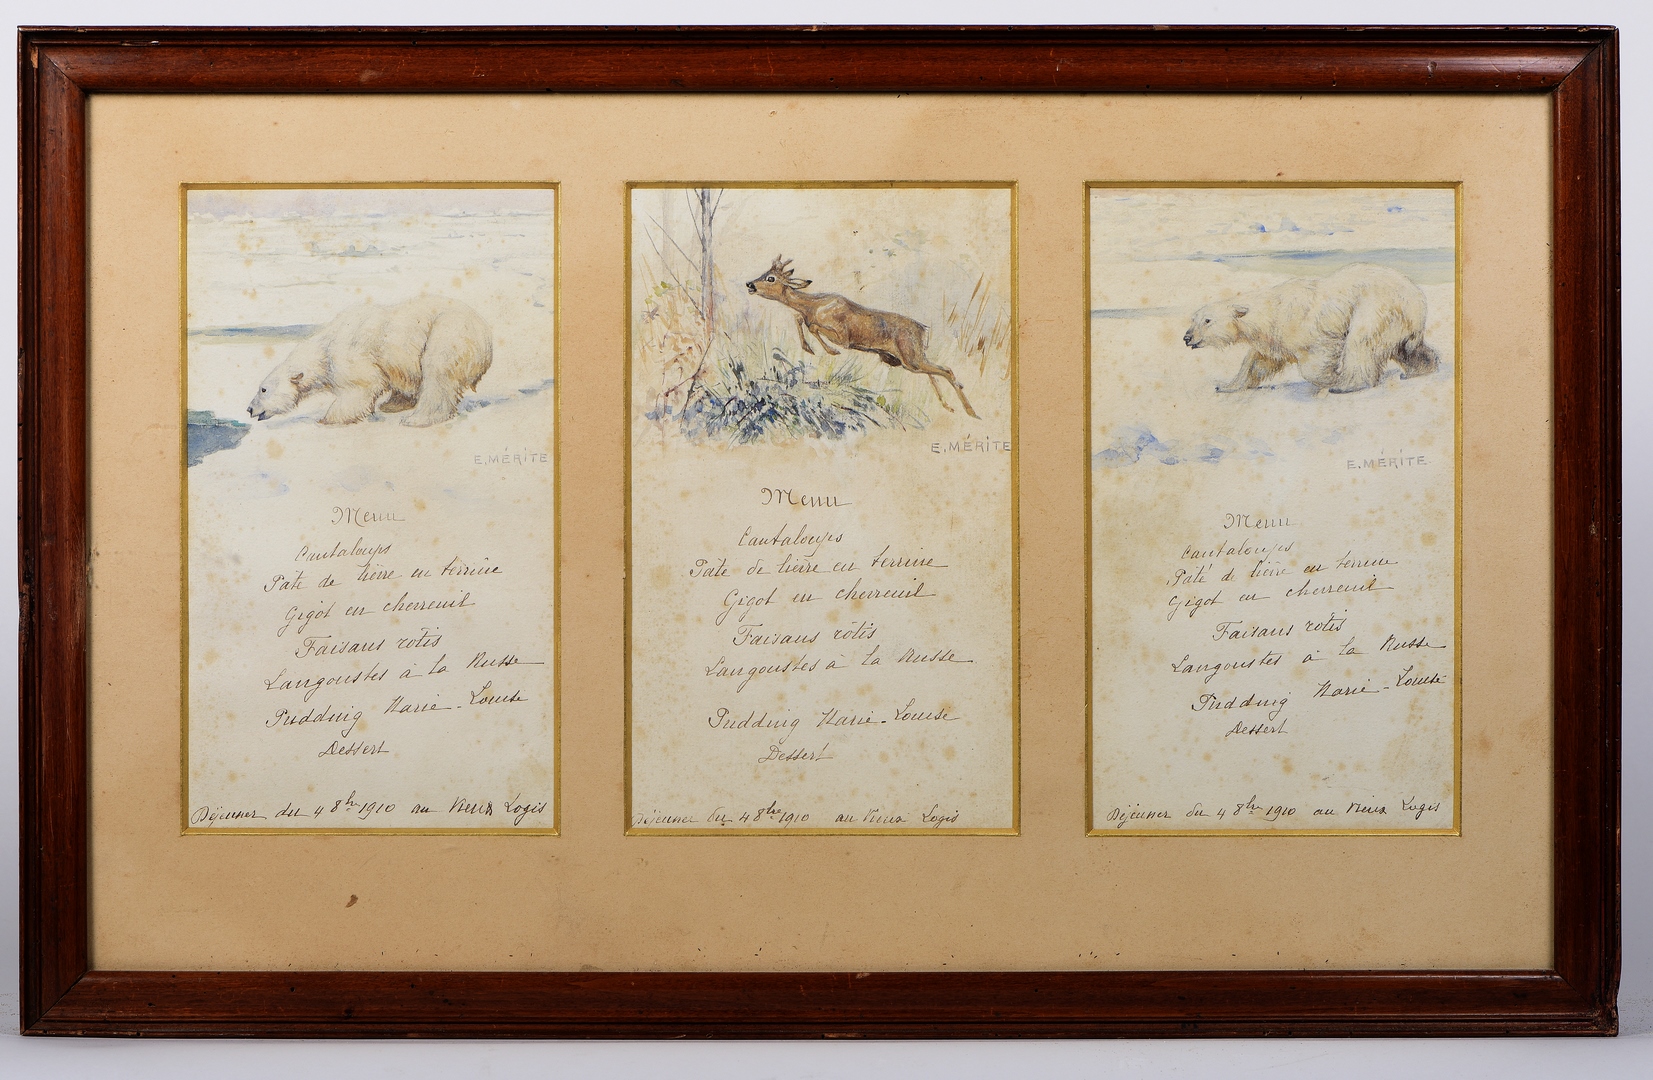 E. MÉRITE
Menu
Cantaloups
Pâté de lièvre en terrine
Gigot en chevreuil
Faisans rôtis
Langoustes à la Russe
Pudding Marie-Louise
Dessert
Déjeuner du 4 8bre 1910 au Vieux Logis
E. MÉRITE
Menu
Cantaloups
Pâté de lièvre en terrine
Gigot en chevreuil
Faisans rôtis
Langoustes à la Russe
Pudding Marie-Louise
Dessert
Déjeuner du 4 8bre 1910 au Vieux Logis
E. MÉRITE
Menu
Cantaloups
Pâté de lièvre en terrine
Gigot en chevreuil
Faisans rôtis
Langoustes à la Russe
Pudding Marie-Louise
Dessert
Déjeuner du 4 8bre 1910 au Vieux Logis